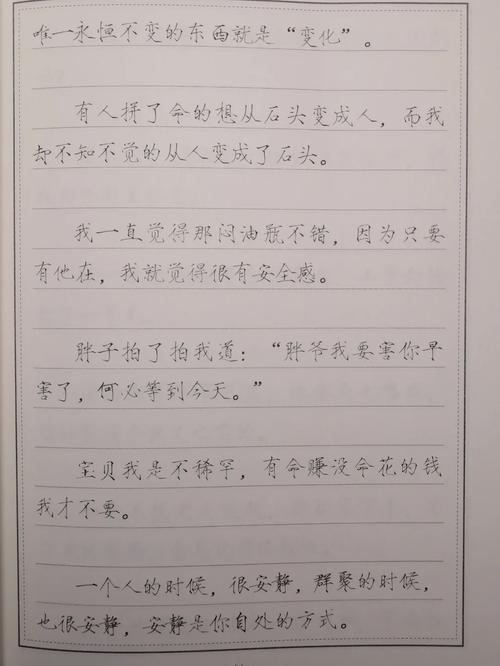 唯一永恒不变的东西就是“变化”。
有人拼了命的想从石头变成人，而我
却不知不觉的从人变成了石头。
我一直觉得那闷油瓶不错，因为只要
有他在，我就觉得很有安全感。
胖子拍了拍我道：“胖爷我要害你早
害了，何必等到今天。”
宝贝我是不稀罕，有命赚没命花的钱
我才不要。
一个人的时候，很安静，群聚的时候，
也很安静，安静是你自处的方式。